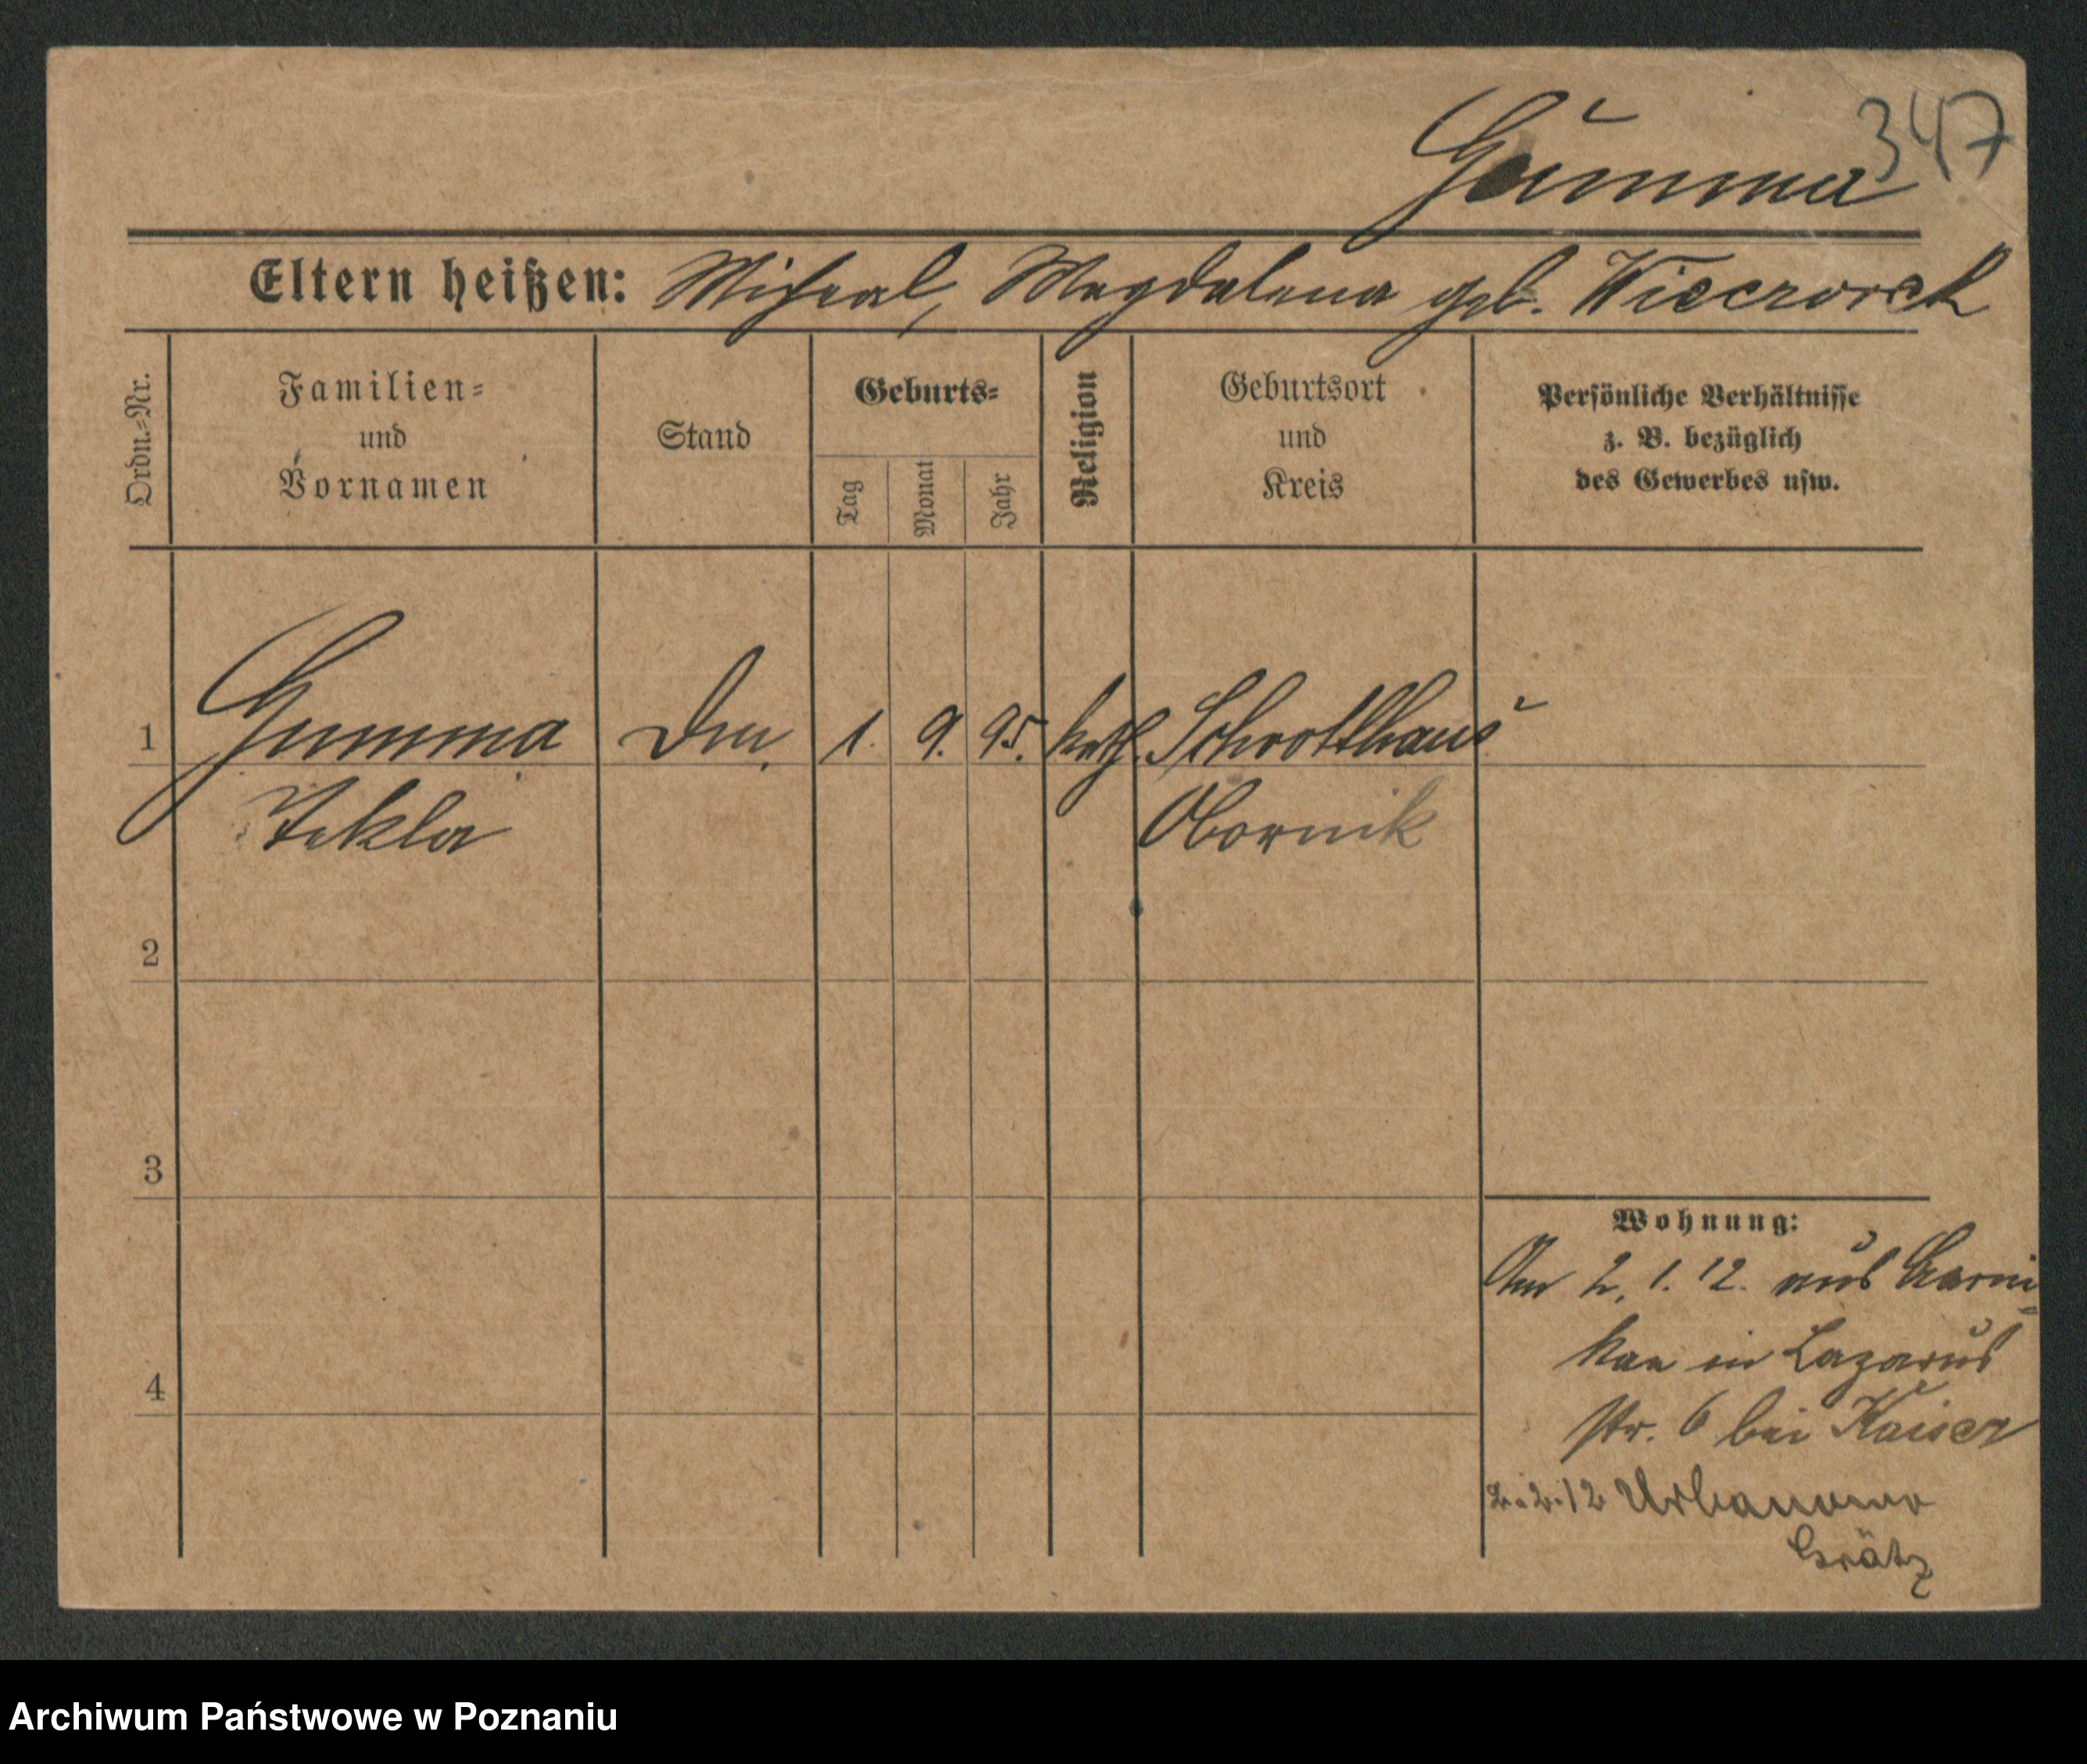 347
Gumma
Eltern heißen: Micheal, Magdalena geb. Wieczorek
Ordn.-Nr.
Familien-
und
Vornamen
Stand
Geburts-
Tag
Monat
Jahr
Religion
Geburtsort
und
Kreis
Persönliche Verhältnisse
z. B. bezüglich
des Gewerbes usw.
1 Gumma 1. 9. 95. kath. Schrotthaus
Tekla Obornik
2
3
4
Wohnung:
Am 2. 1. 12. aus Czarni-
kau in Lazarus
str. 6 bei Kaiser
2.2.12 Urbanowo
Grätz
Archiwum Państwowe w Poznaniu